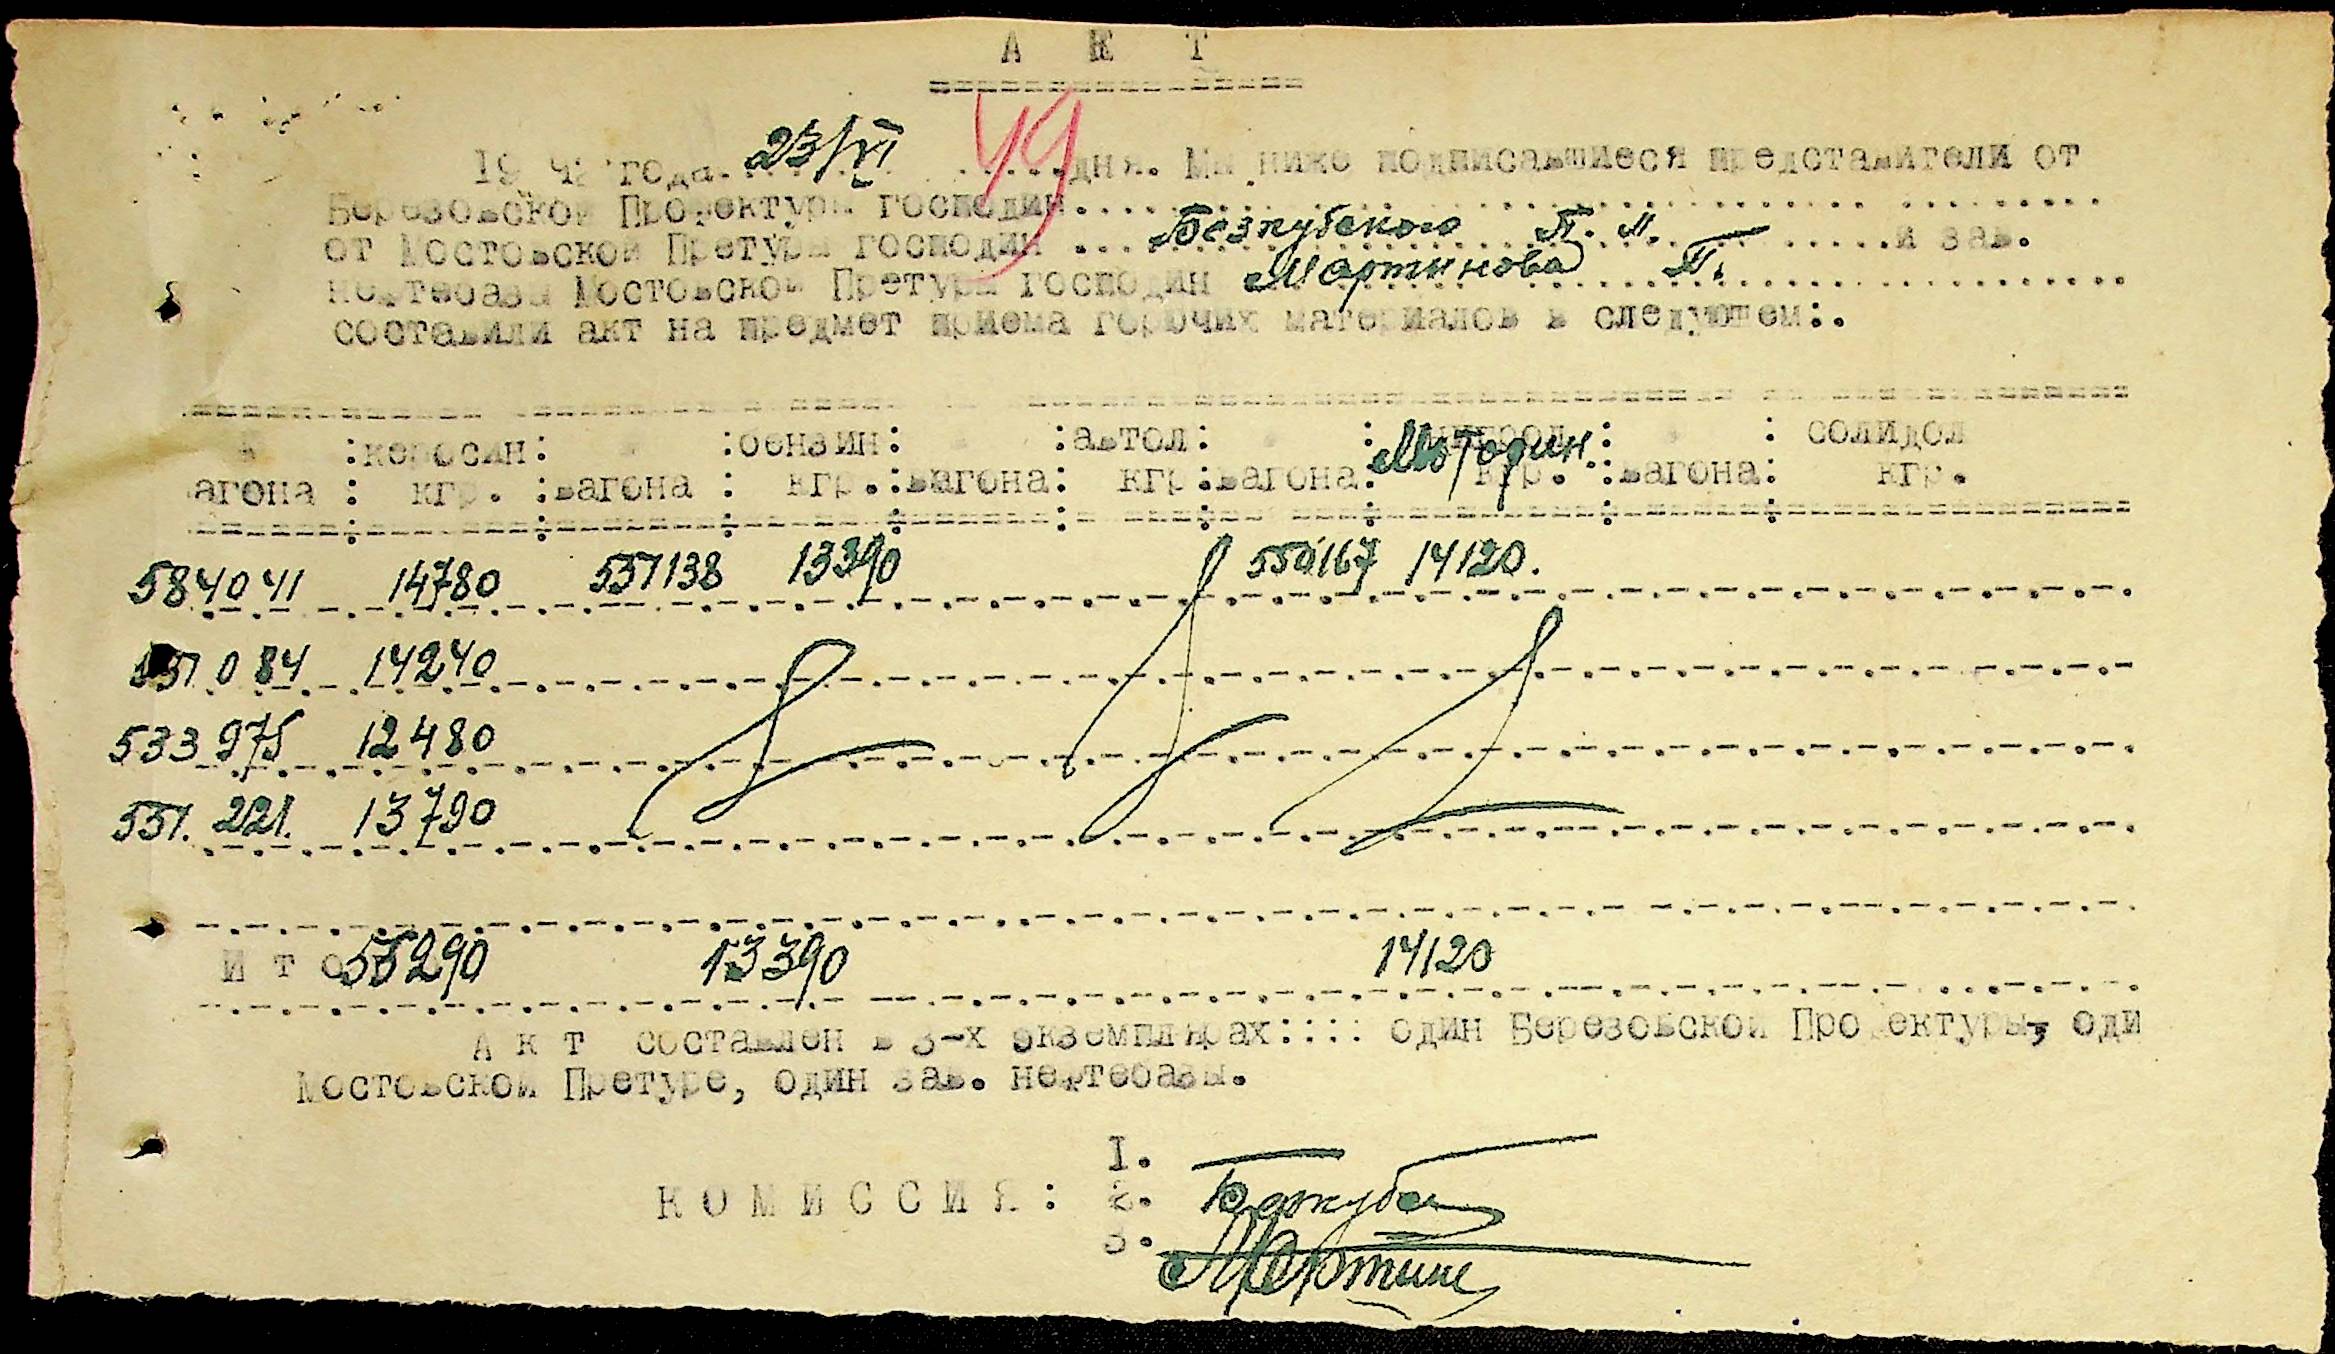 А К Т
49
19 42 года. 23/VI дня. Мы ниже подписавшиеся представители от
Березовской Профектуры господин
от Мостовской Претуры господин ... Безкубского П. М. и зав.
нефтебазы Мостовской Претуры господин Мартинова П.
составили акт на предмет приема горючих материалов в следующем:.
:керосин: :бензин: :автол: : Моторин : : солидол
агона : кгр. :вагона : кгр.:вагона: кгр:вагона: кгр. :вагона: кгр.
584041 14780 551138 13390 550167 14120.
551084 14240
533975 12480
551.221. 13790
И т о 55290 13390 14120
А к т составлен в 3-х экземплярах:::: один Березовской Профектуры, оди
Мостовской Претуре, один зав. нефтебазы.
1.
К О М И С С И Я : 2.
3. Мартин